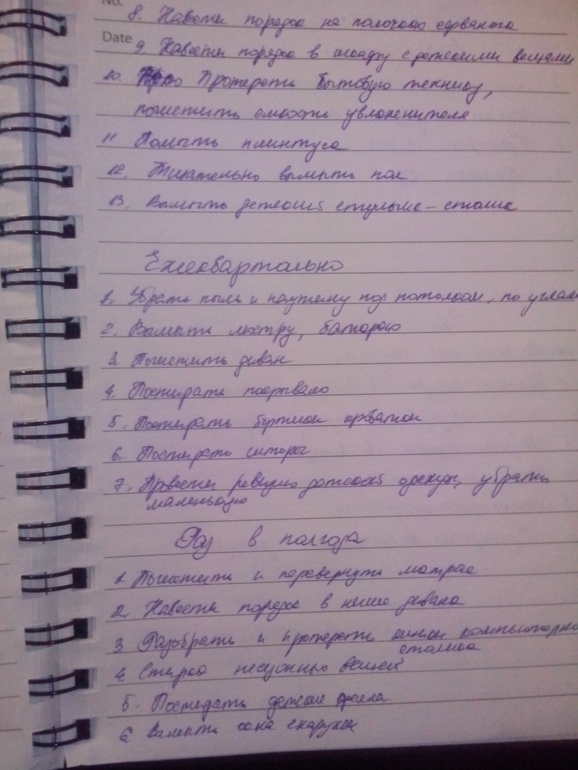 No.
8. Навести порядок на полочках серванта
Date
9 Навести порядок в шкафу с детскими вещами
10. Протереть бытовую технику,
почистить емкость увлажнителя
11 Помыть плинтуса
12. Тщательно вымыть пол
13. Вымыть детский стульчик-столик
Ежеквартально
1. Убрать пыль и паутину под потолком, по углам
2. Вымыть люстру, батарею
3. Почистить диван
4. Постирать покрывало
5. Постирать бортики кроватки
6. Постирать шторы
7. Провести ревизию детской одежды, убрать
маленькую
Раз в полгода
1. Почистить и перевернуть матрас
2. Навести порядок в нише дивана
3 Разобрать и протереть ящики компьютерного
столика
4. Стирка несезонных вещей
5. Постирать детские
6 Вымыть окна снаружи